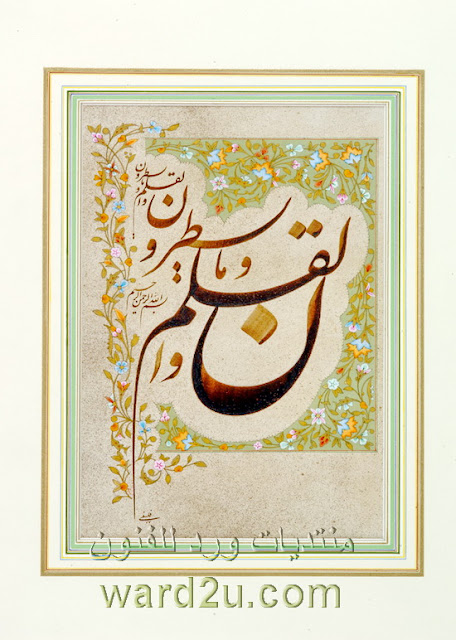 ن والقلم وما يسطرون
بسم الله الرحمن الرحيم
ن والقلم وما يسطرون
منتديات ورد للفنون
ward2u.com